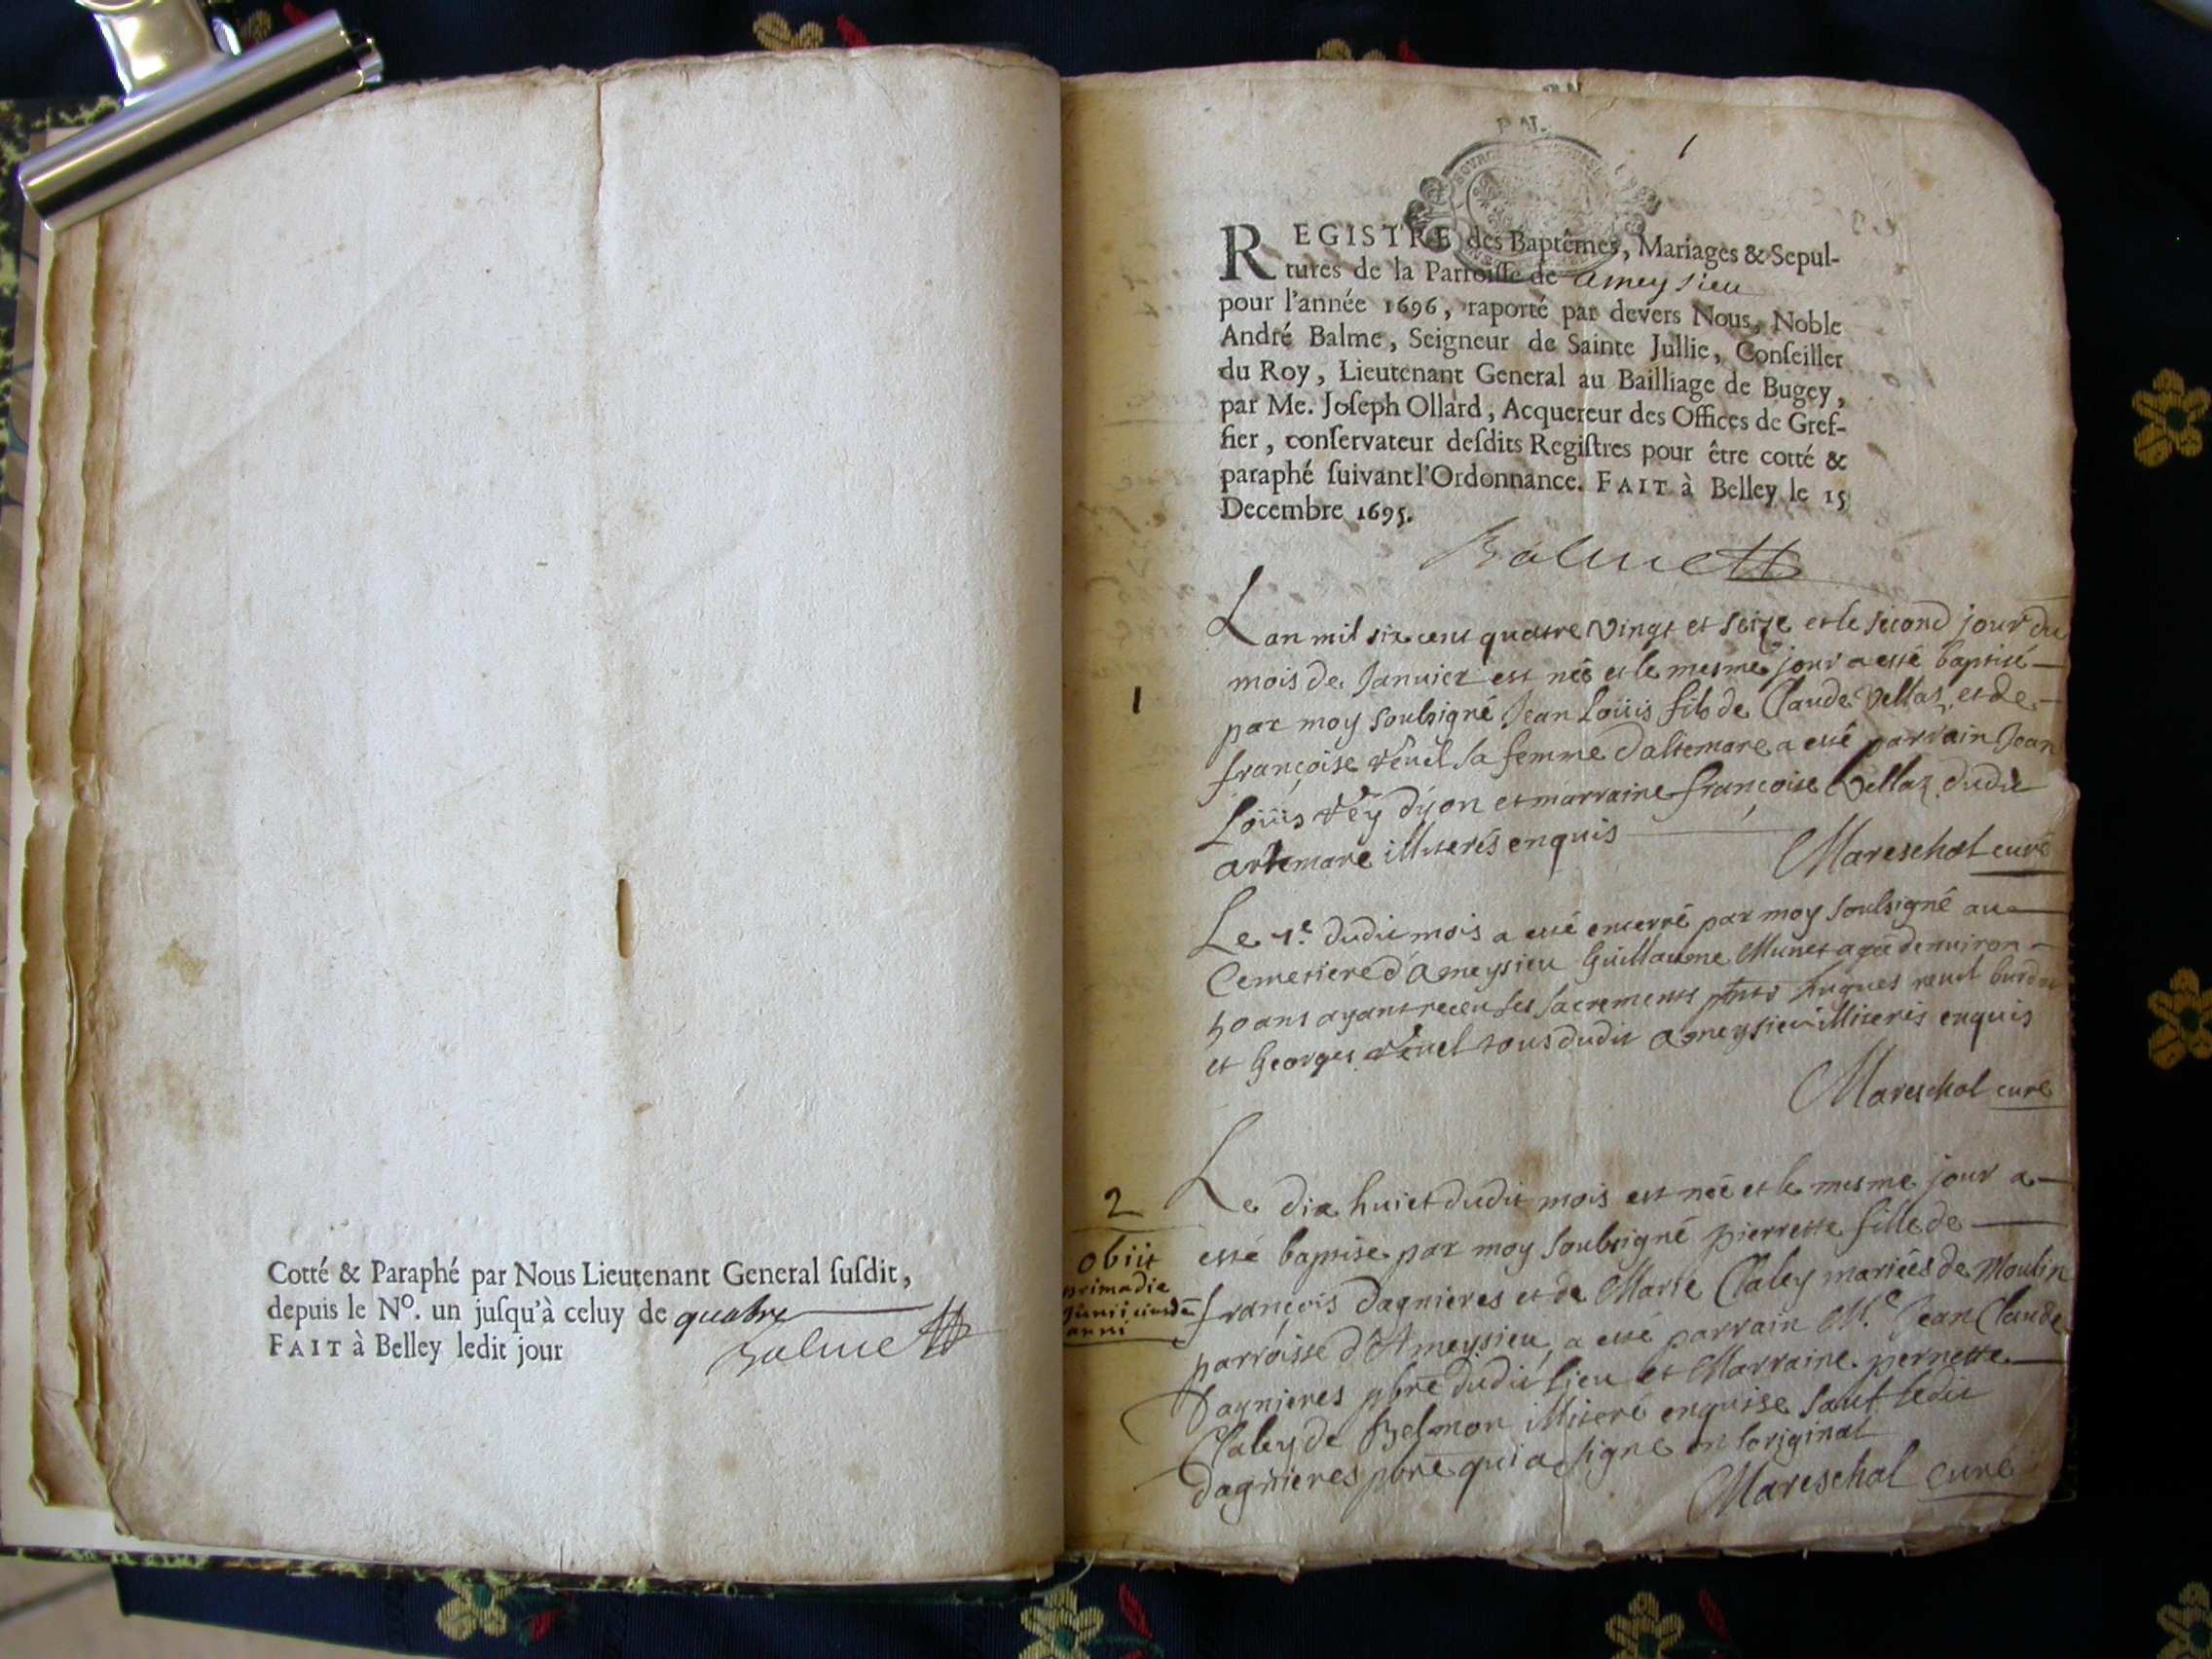 Cotté & Paraphé par Nous Lieutenant General ſuſdit,
depuis le No. un juſqu'à celuy de quatre
FAIT à Belley ledit jour
Balme
1
REGISTRE des Baptêmes, Mariages & Sepul-
tures de la Parroiſſe de ameysieu
pour l'année 1696, raporté par devers Nous, Noble
André Balme, Seigneur de Sainte Jullie, Conſeiller
du Roy, Lieutenant General au Bailliage de Bugey,
par Me. Joſeph Ollard, Acquereur des Offices de Gref-
fier, conſervateur deſdits Regiſtres pour être cotté &
paraphé ſuivant l'Ordonnance. FAIT à Belley le 15
Decembre 1695.
Balme
Lan mil six cent quatre vingt et seize et le second jour du
mois de Januier est néé et le mesme jour a esté baptisé
1
par moy soubsigné Jean Loüis fils de Claude Vellaz et de
françoise reuel sa femme daltemare a esté parrain Jean
Loüis rey dyon et marraine françoise Vellaz dudit
artemare illiterés enquis
Mareschal curé
Le 7e dudit mois a esté enterré par moy soubsigné au
Cemetiere d'ameysieu Guillaume Munet agée denuiron
50 ans ayant receu ses sacrements pnts hugues reuel
et Georges reuel tous dudit ameysieu illiterés enquis
Mareschal curé
2
Le dix huict dudit mois est néé et le mesme jour a
esté baptisé par moy soubsigné pierrette fille de
obiit
prima die
Junii eiusde
anni
françois Dagnieres et de Marie Claley mariéés de Moulin
parroisse d'Ameysieu, a esté parrain Mre Jean Claude
Dagnieres pbre dudit lieu et Marraine pernette
Claley de Belmon illiteré enquise sauf ledit
dagnieres pbre qui a signé en loriginal
Mareschal curé